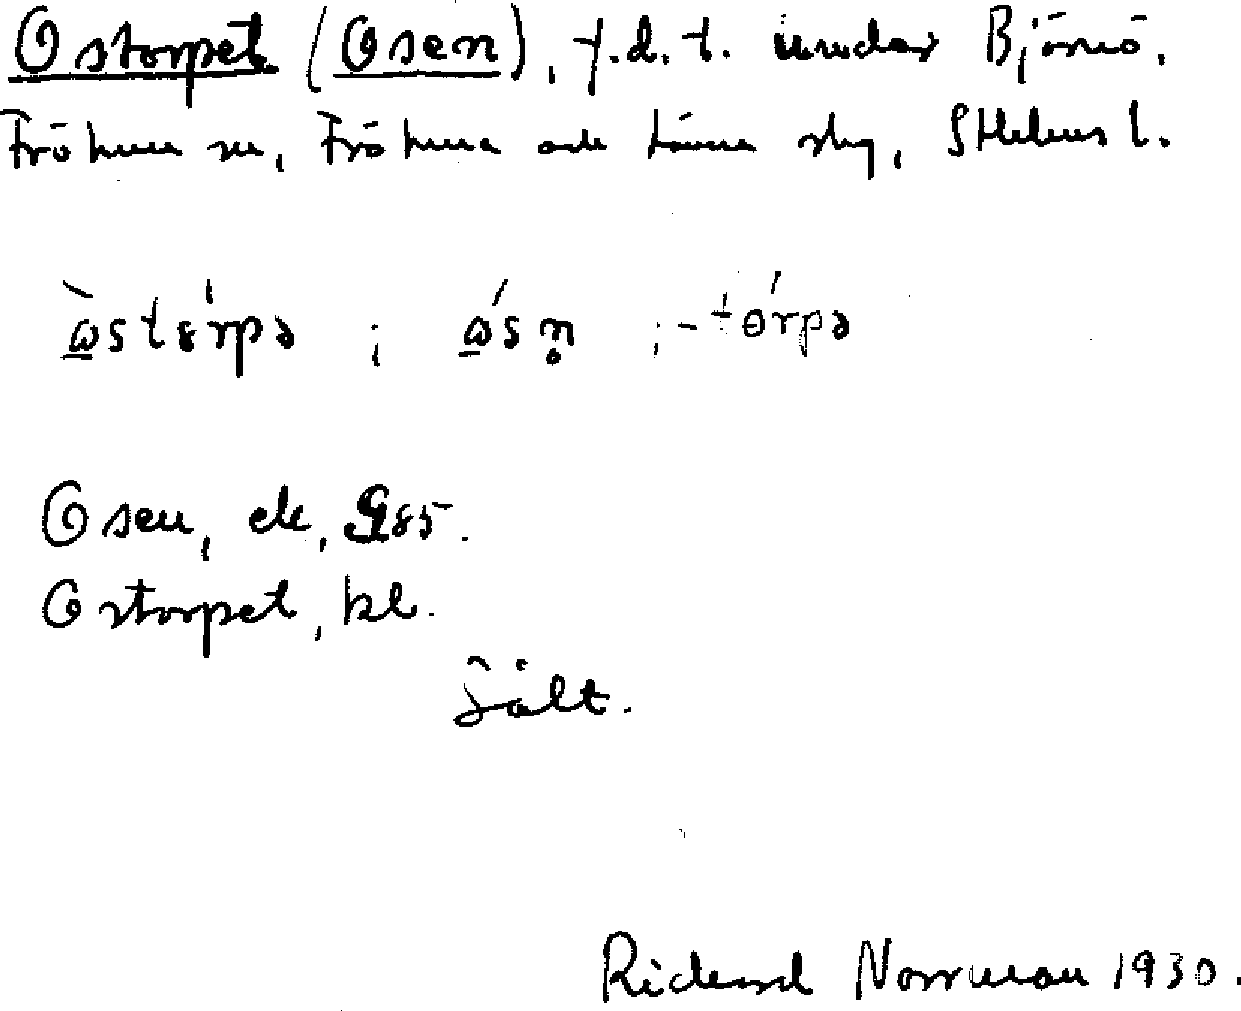 Ostorpet (Osen), f.d.t. under Björnö,
Frötuna sn, Frötuna och Länna skg, Sthlms l.
ὼstɞ́rpə ; ώsn̥ ; -tɵ́rpə
Osen, ek, G85.
Ostorpet, bl.
Jält.
Rickard Norrman 1930.